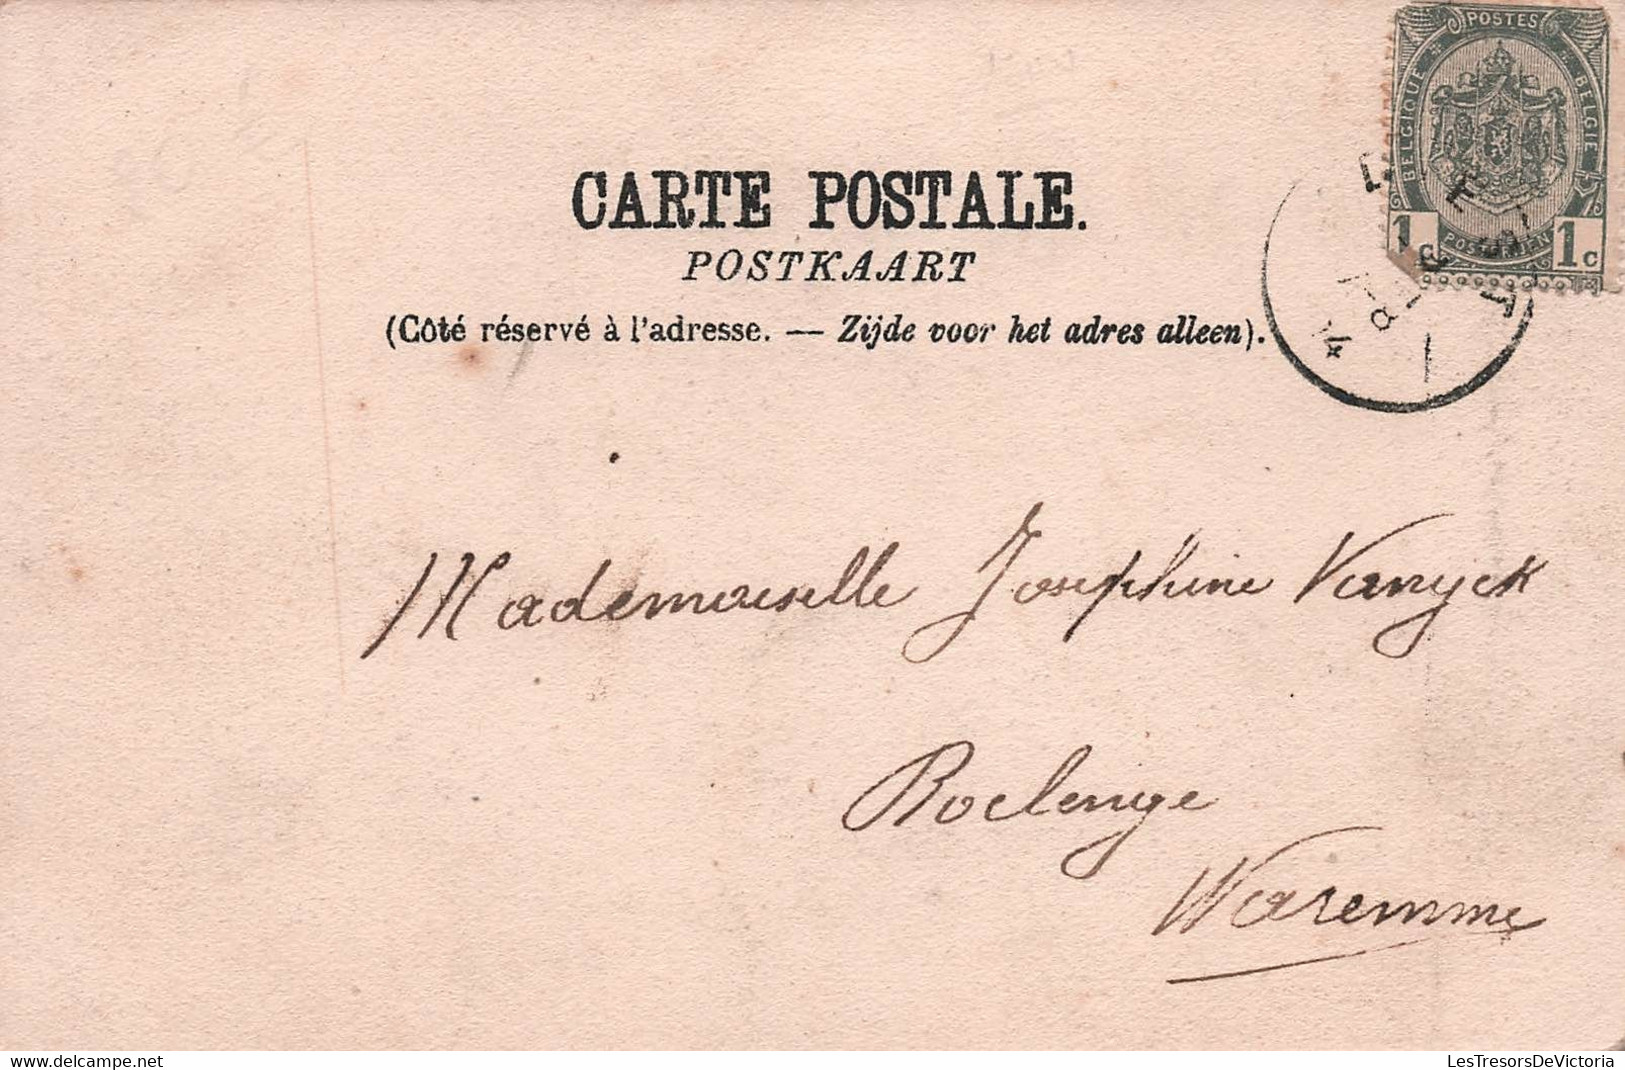 POSTES
BELGIQUE
BELGIE
1c
POSTERIJEN
1c
CARTE POSTALE.
POSTKAART
(Côté réservé à l'adresse. — Zijde voor het adres alleen).
Mademoiselle Josephine Vanyck
Boelenge
Waremme
delcampe.net
LesTresorsDeVictoria